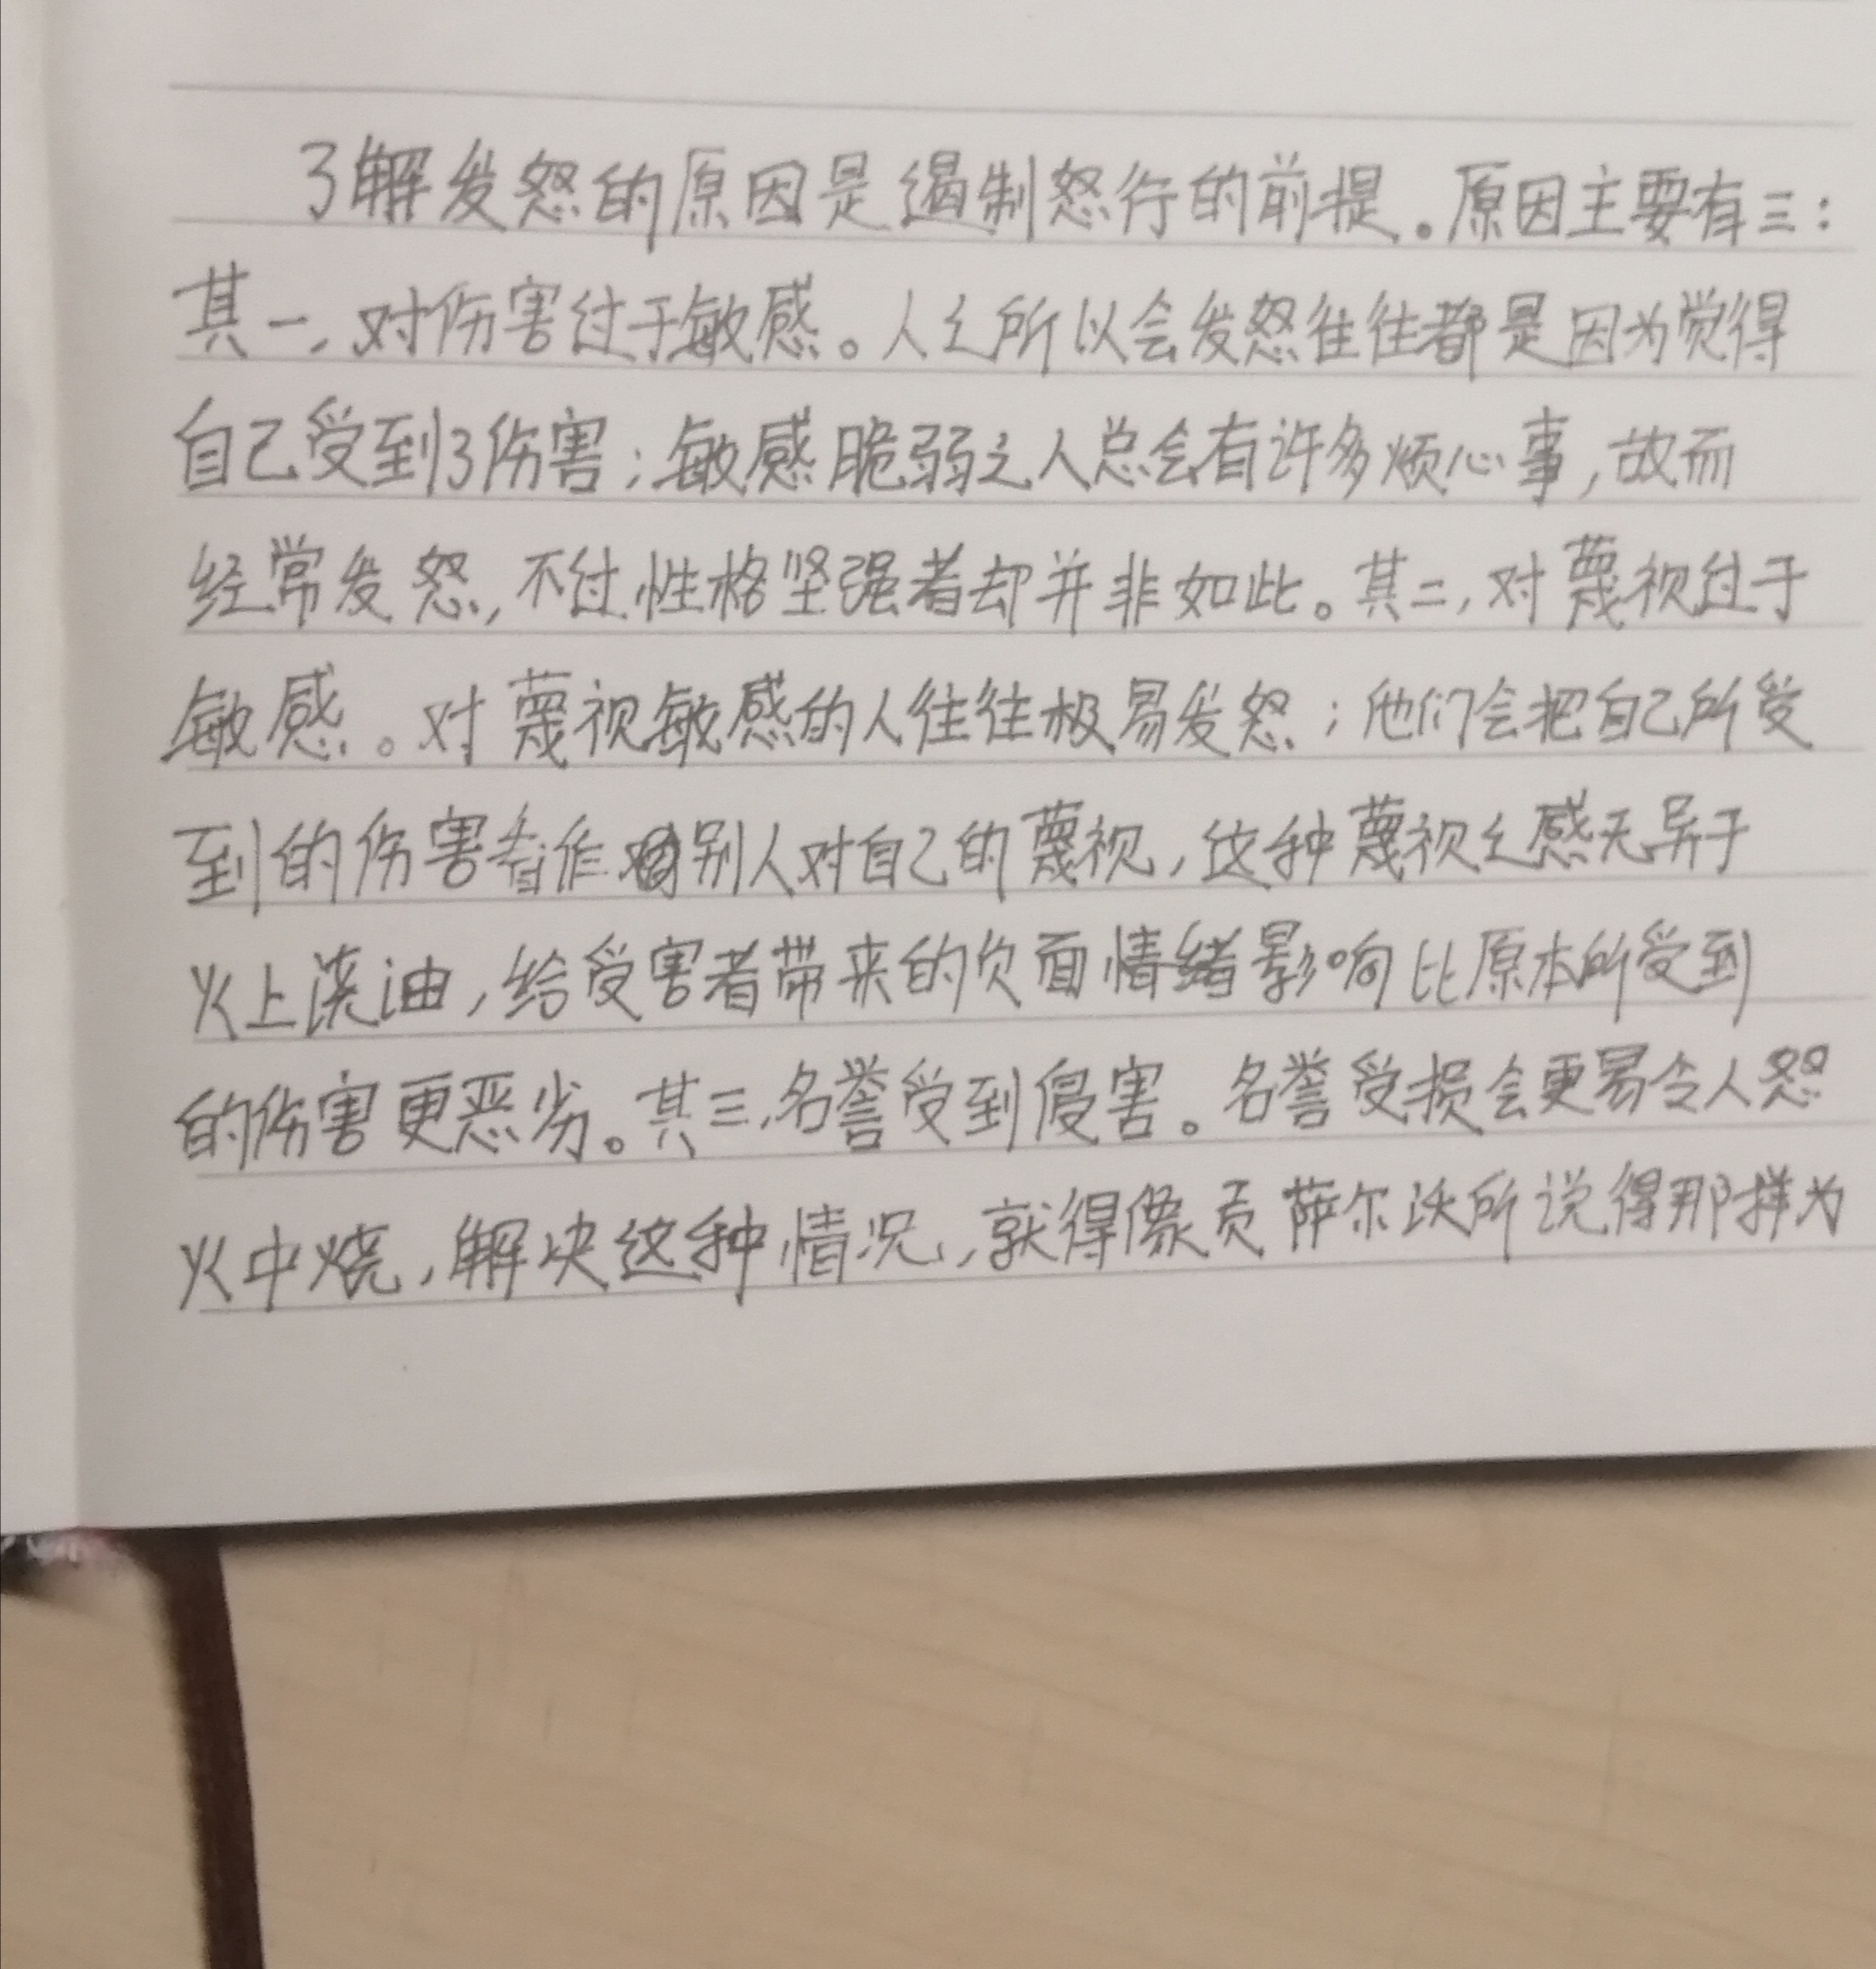 了解发怒的原因是遏制怒行的前提。原因主要有三：
其一，对伤害过于敏感。人之所以会发怒往往都是因为觉得
自己受到了伤害；敏感脆弱之人总会有许多烦心事，故而
经常发怒，不过性格坚强者却并非如此。其二，对蔑视过于
敏感。对蔑视敏感的人往往极易发怒；他们会把自己所受
到的伤害看作别人对自己的蔑视，这种蔑视之感无异于
火上浇油，给受害者带来的负面情绪影响比原本所受到
的伤害更恶劣。其三，名誉受到侵害。名誉受损会更易令人怒
火中烧，解决这种情况，就得像贡萨尔沃所说得那样为